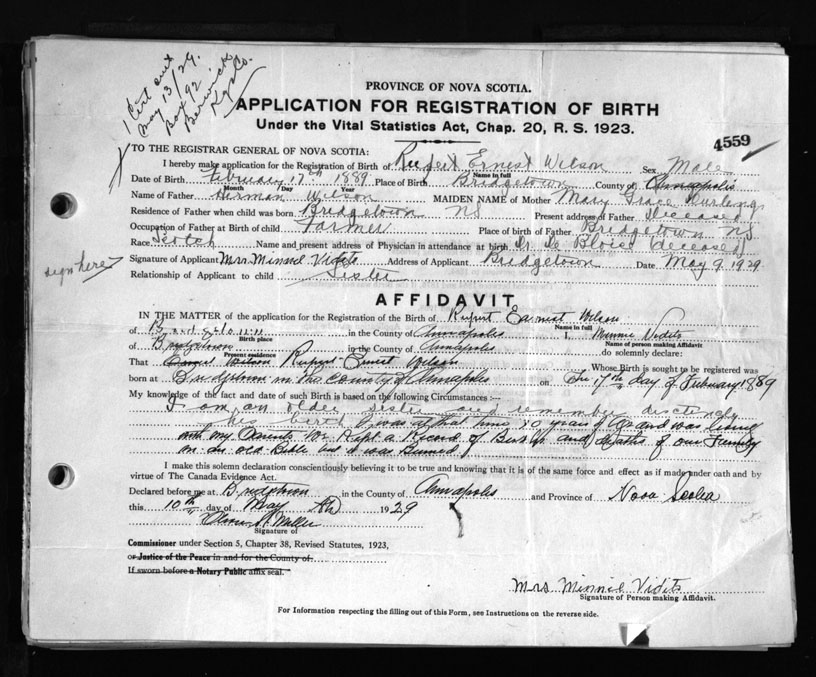 1 Cert sent
May 13/29.
Box 92
Berwick
Kgs Co.
PROVINCE OF NOVA SCOTIA.
APPLICATION FOR REGISTRATION OF BIRTH
Under the Vital Statistics Act, Chap. 20, R. S. 1923.
4559
TO THE REGISTRAR GENERAL OF NOVA SCOTIA:
I hereby make application for the Registration of Birth of Rupert Ernest Wilson Sex Male
Name in full
Date of Birth February 17th 1889 Place of Birth Bridgetown County of Annapolis
Month Day Year
Name of Father Herman Wilson MAIDEN NAME of Mother Mary Grace
Residence of Father when child was born Bridgetown NS Present address of Father deceased
Occupation of Father at Birth of child Farmer Place of birth of Father Bridgetown NS
Race Scotch Name and present address of Physician in attendance at birth Dr. De Blois deceased
sign here
Signature of Applicant Mrs. Minnie Vidito Address of Applicant Bridgetown Date May 9, 1929
Relationship of Applicant to child Sister
AFFIDAVIT
IN THE MATTER of the application for the Registration of the Birth of Rupert Earnest Wilson
Name in full
of Bridgetown in the County of Annapolis I, Minnie Vidito
Birth place Name of person making Affidavit
of Bridgetown in the County of Annapolis do solemnly declare:
Present residence
That Rupert Ernest Wilson Whose Birth is sought to be registered was
born at Bridgetown in the County of Annapolis on the 17th day of February 1889
My knowledge of the fact and date of such Birth is based on the following Circumstances:-
I am an older sister and remember distinctly
his birth I was at that time 10 years of age and was living
with my Parents. We Kept a Record of Births and Deaths of our Family
in an old Bible and it was Burned
I make this solemn declaration conscientiously believing it to be true and knowing that it is of the same force and effect as if made under oath and by
virtue of The Canada Evidence Act.
Declared before me at Bridgetown in the County of Annapolis and Province of Nova Scotia
this 10th day of May 1929
Miller
Signature of
Commissioner under Section 5, Chapter 38, Revised Statutes, 1923,
or Justice of the Peace in and for the County of
If sworn before a Notary Public affix seal.
Mrs Minnie Vidito
Signature of Person making Affidavit.
For Information respecting the filling out of this Form, see Instructions on the reverse side.